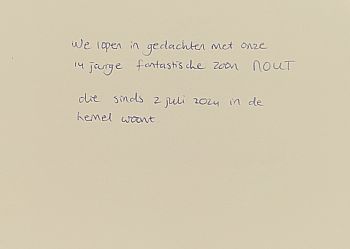 We lopen in gedachten met onze
14 jarige fantastische zoon NOUT
die sinds 2 juli 2024 in de
hemel woont